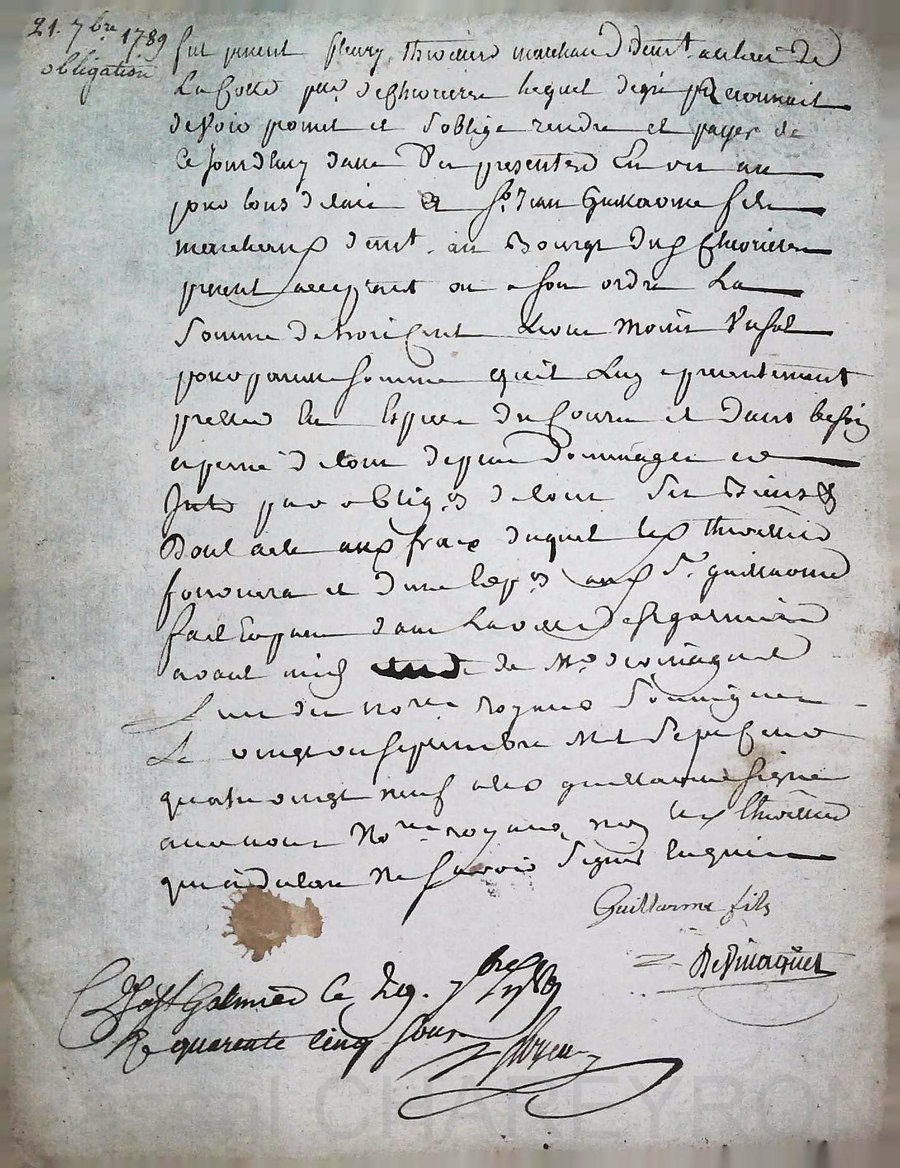 21. 7bre 1789
obligation
fut present fleury thivellier marchand demt. au lieu de
La Cotte psse. de Chevrieres Lequel de gré reconnait
devoir promet et s'oblige rendre et payer de
Ce Jourdhuy dans Un an
pour tous delais a Sr. Jean Guillaume fils
marchand demt. au Bourg dud Chevrieres
present acceptant ou a Son ordre La
Somme de Cent
pour pareille Somme qu'il Luy a presentement
prettée En Especes du Cours et dans Ses besoin
a peine de tous depens Dommages et
Jnts par obligon de tous Ses Biens &
Dont acte aux fraix duquel led thivellier
fournira expon aud Sr. guillaume
fait Et passé dans La ville de St galmier
avant midy Etude de Me
L'un des nores royaux Soussignes
Le vingt un Septembre Mil Sept Cent
quatre vingt neuf Led guillaume Signé
avec nous Nores royaux, non led thivellier
qui a declaré ne Savoir Signer Enquis
Guillaume fils
Cté a St Galmier Ce 29. 7bre 1789
R quarente Cinq Sous
CHAPEYRON